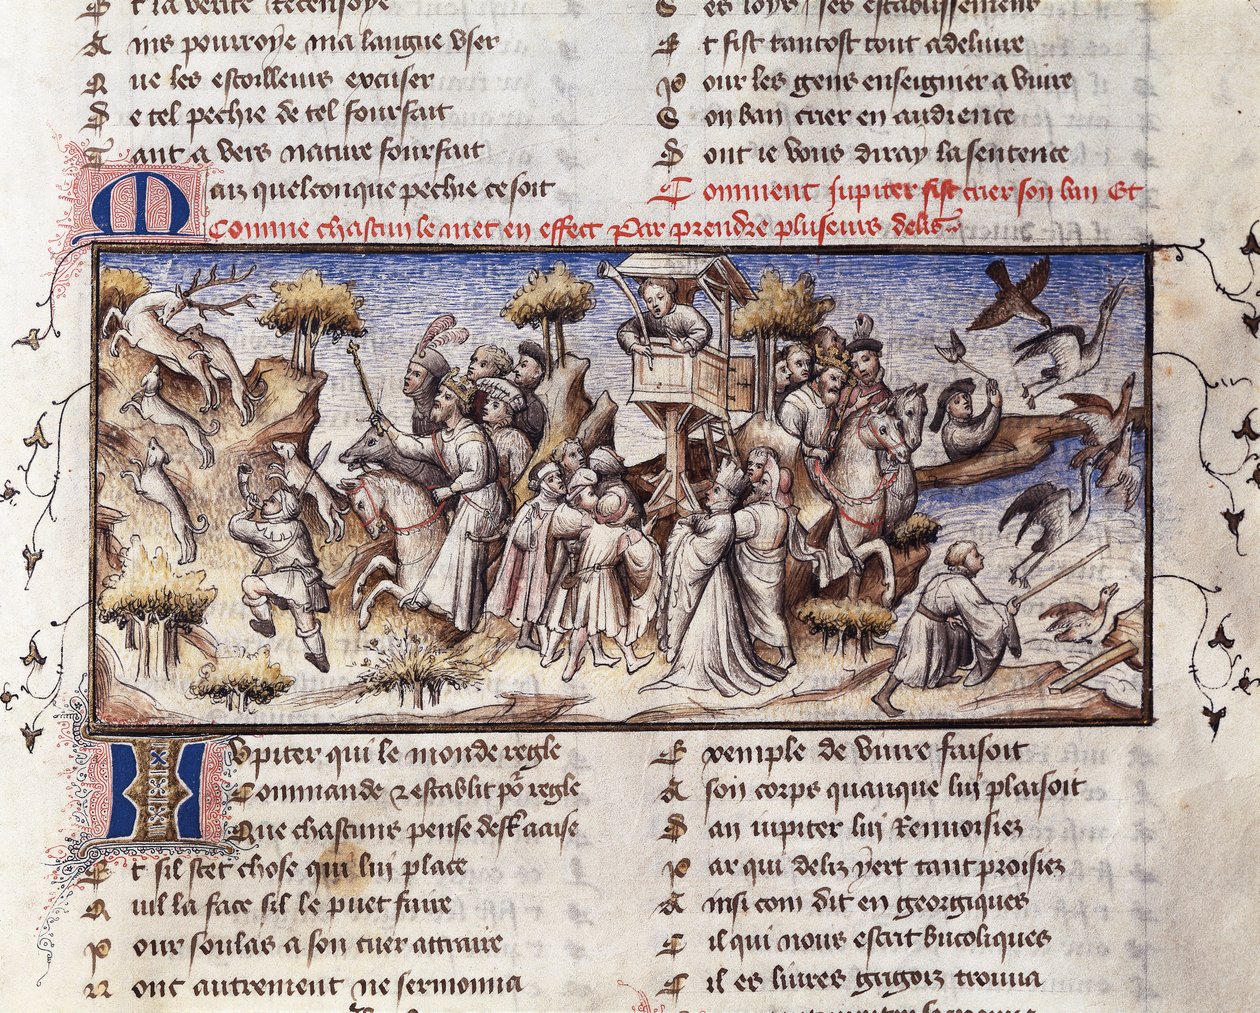 t la verite recensoye
A ins pourroye ma langue vser
Q ue les estoilleurs excuser
D e tel pechie de tel fourfait
T ant a vers nature fourfait
M aiz quelconque pechie ce soit
es loys ses establissemens
E t fist tantost tout a deliure
P our les gens enseignier a viure
S on ban crier en audience
D ont ie vous diray la sentence
Comment Jupiter fist crier son ban Et
Comme chascun le met en effect Par prendre pluseurs delis
Iupiter qui le monde regle
Commande & establit por regle
Que chascuns pense destre aaise
E t sil scet chose qui lui plaise
Q uil la face sil le puet faire
P our soulas a son cuer attraire
N onc autrement ne sermonna
E xemple de viure faisoit
A son corps quanque lui plaisoit
D an iupiter lui Renuoisiez
P ar qui deliz yert tant proisiez
A insi com dit en georgiques
C il qui nous escrit bucoliques
C il es liures grigoiz trouua